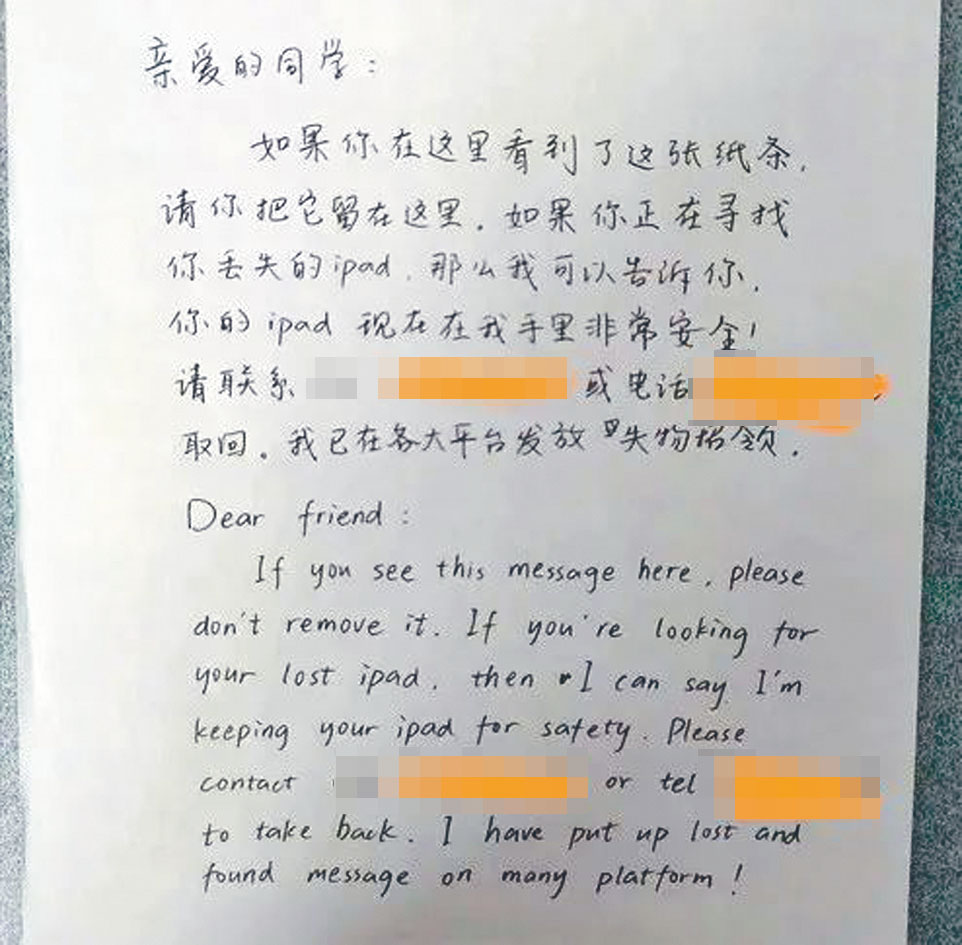 亲爱的同学：
如果你在这里看到了这张纸条，
请你把它留在这里。如果你正在寻找
你丢失的ipad，那么我可以告诉你，
你的ipad 现在在我手里非常安全！
请联系 或电话
取回。我已在各大平台发放失物招领。
Dear friend：
If you see this message here, please
don't remove it. If you're looking for
your lost ipad, then I can say I'm
keeping your ipad for safety. Please
contact or tel
to take back. I have put up lost and
found message on many platform！